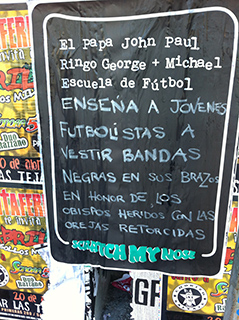 El Papa John Paul
Ringo George + Michael
Escuela de Fútbol
ENSEÑA A JÓVENES
FUTBOLÍSTAS A
VESTIR BANDAS
NEGRAS EN SUS BRAZOS
EN HONOR DE LOS
OBISPOS HERIDOS CON LAS
OREJAS RETORCIDAS
SCRATCH MY NOSE